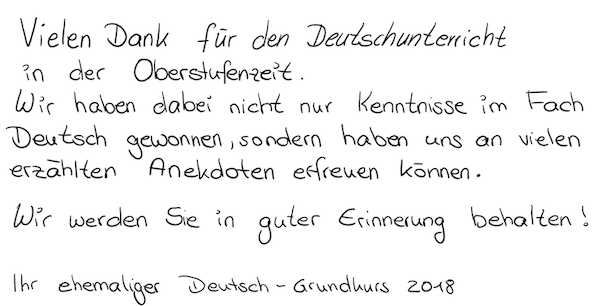 Vielen Dank für den Deutschunterricht
in der Oberstufenzeit.
Wir haben dabei nicht nur Kenntnisse im Fach
Deutsch gewonnen, sondern haben uns an vielen
erzählten Anekdoten erfreuen können.
Wir werden Sie in guter Erinnerung behalten!
Ihr ehemaliger Deutsch-Grundkurs 2018